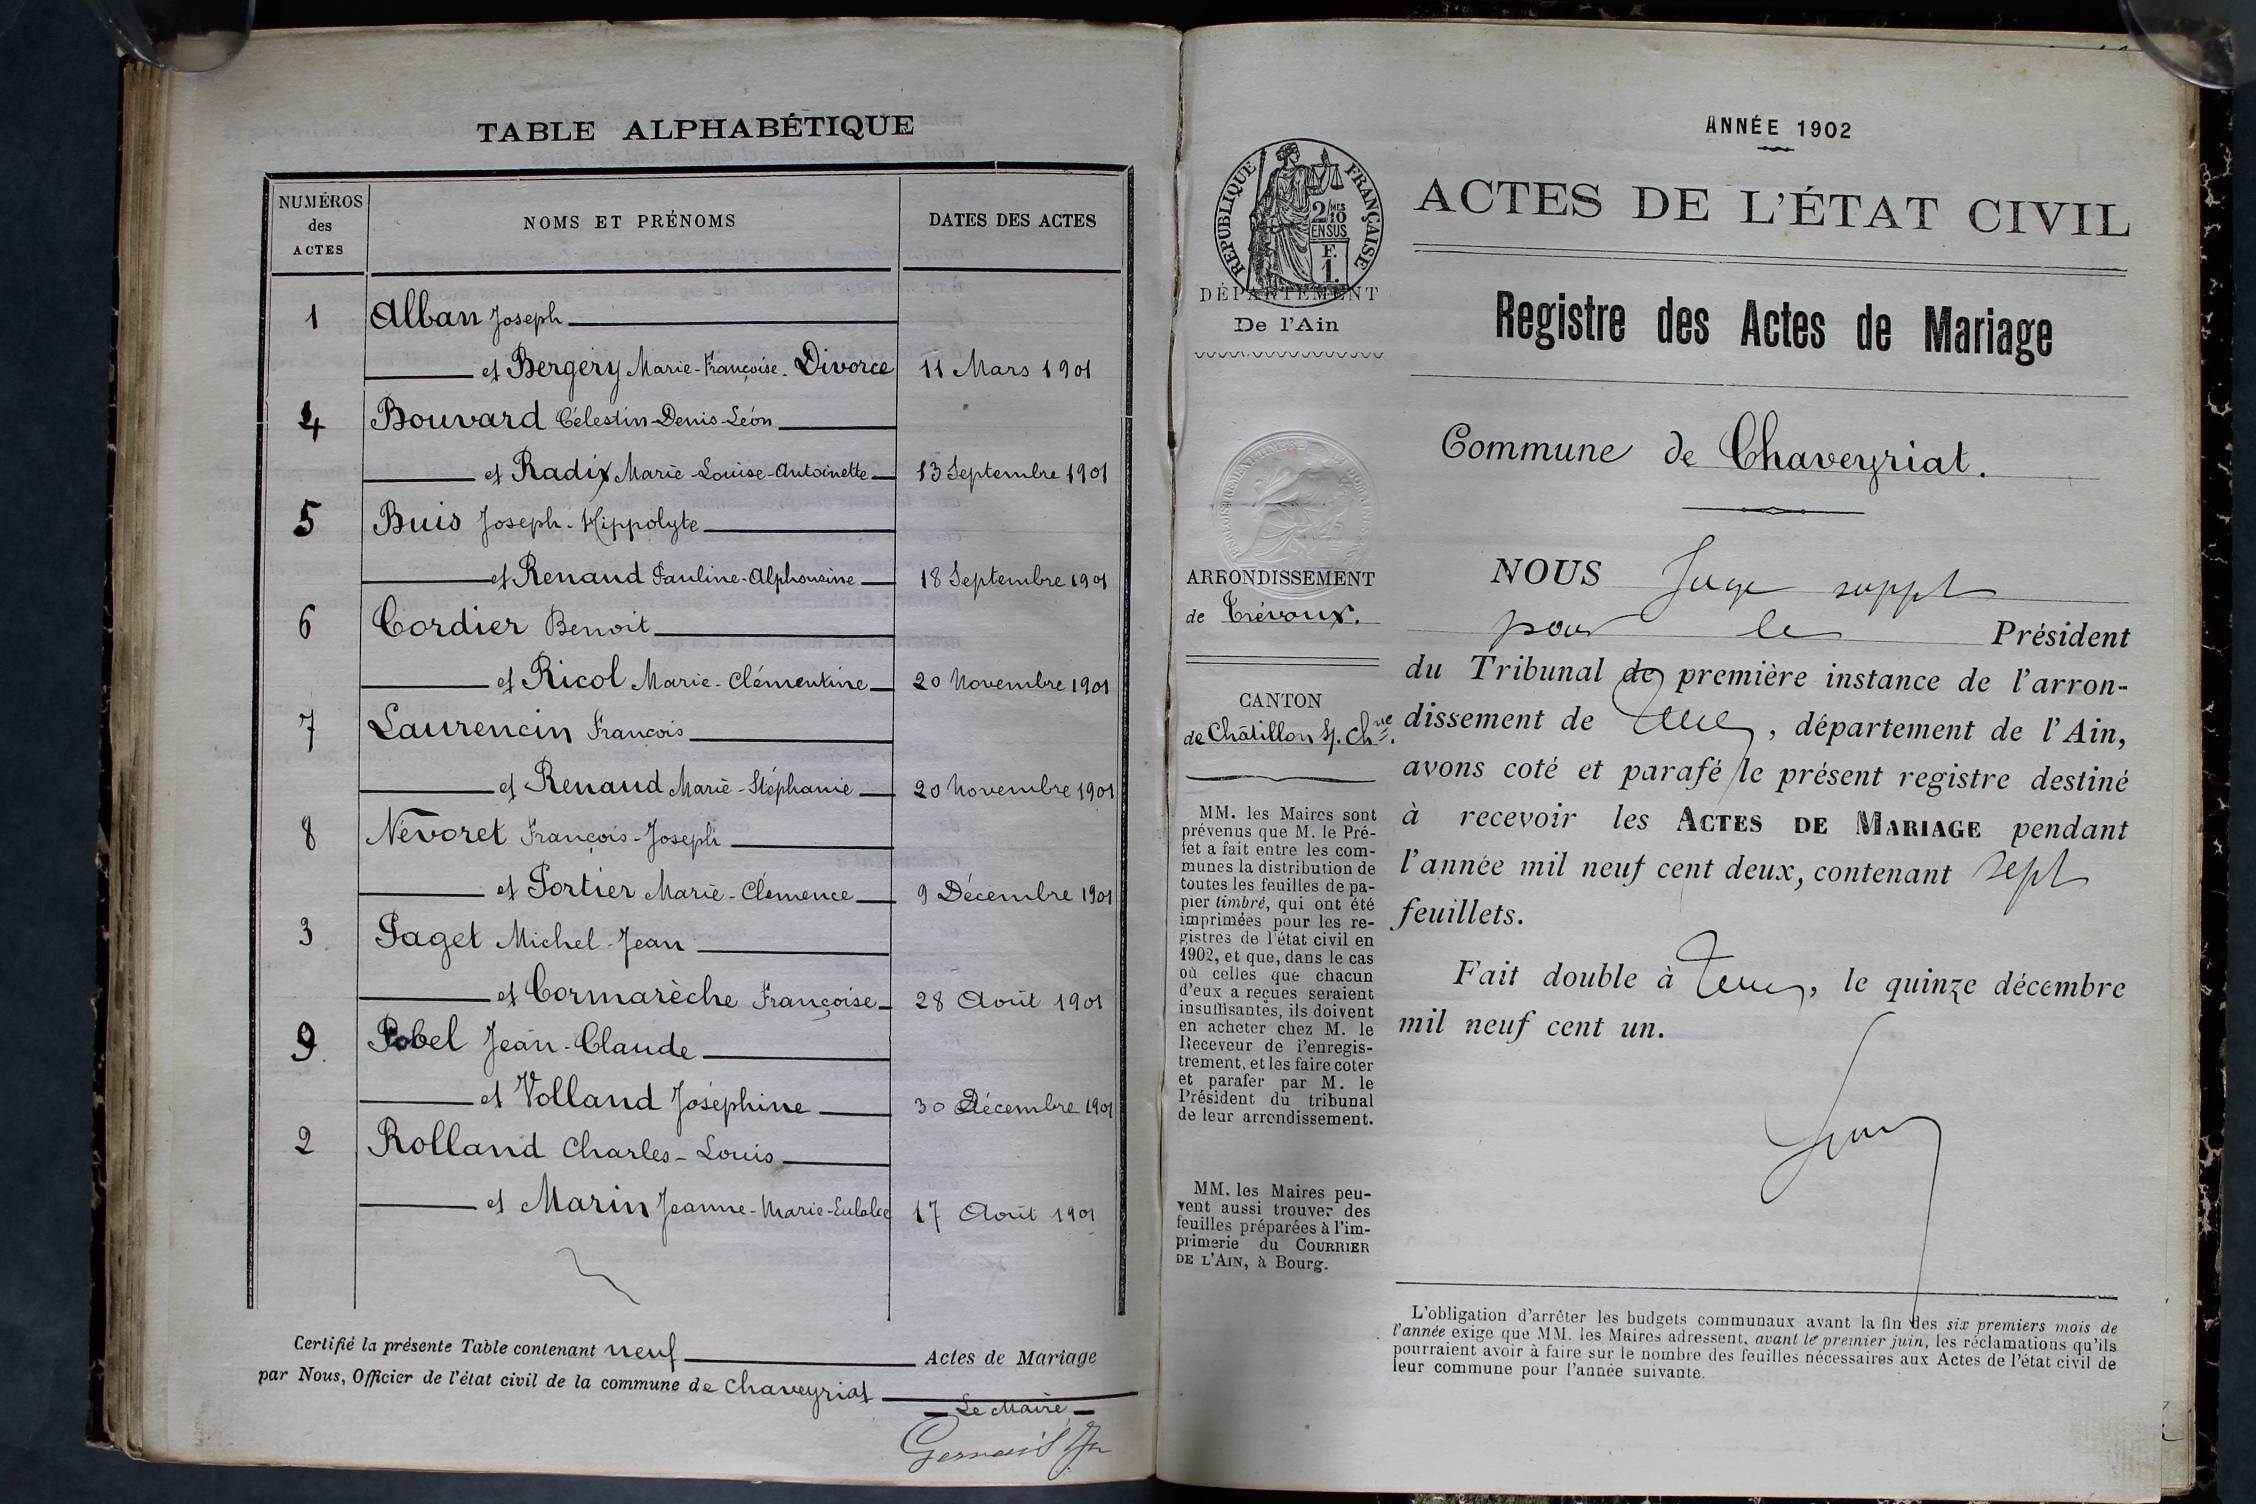 TABLE ALPHABÉTIQUE
NUMÉROS
des
ACTES
NOMS ET PRÉNOMS
DATES DES ACTES
1 Alban Joseph
et Bergéry Marie-Françoise. Divorce 11 Mars 1901
4 Bouvard Célestin-Denis-Léon
et Radix Marie-Louise-Antoinette 13 Septembre 1901
5 Buis Joseph-Hippolyte
et Renaud Pauline-Alphonsine 18 Septembre 1901
6 Cordier Benoit
et Ricol Marie-Clémentine 20 Novembre 1901
7 Laurencin François
et Renaud Marie-Stéphanie 20 Novembre 1901
8 Névoret François-Joseph
et Portier Marie-Clémence 9 Décembre 1901
3 Paget Michel-Jean
et Cormarèche Françoise 28 Août 1901
9 Pobel Jean-Claude
et Volland Joséphine 30 Décembre 1901
2 Rolland Charles-Louis
et Marin Jeanne-Marie-Eulalie 17 Août 1901
Certifié la présente Table contenant neuf Actes de Mariage
par Nous, Officier de l'état civil de la commune de Chaveyriat
Le Maire
RÉPUBLIQUE FRANÇAISE
2 MES
10
EN SUS
F.
1.
DÉPARTEMENT
De l'Ain
ARRONDISSEMENT
de Trévoux.
CANTON
de Châtillon s/. Chne.
MM. les Maires sont
prévenus que M. le Pré-
fet a fait entre les com-
munes la distribution de
toutes les feuilles de pa-
pier timbré, qui ont été
imprimées pour les re-
gistres de l'état civil en
1902, et que, dans le cas
où celles que chacun
d'eux a reçues seraient
insuffisantes, ils doivent
en acheter chez M. le
Receveur de l'enregis-
trement, et les faire coter
et parafer par M. le
Président du tribunal
de leur arrondissement.
MM. les Maires peu-
vent aussi trouver des
feuilles préparées à l'im-
primerie du COURRIER
DE L'AIN, à Bourg.
ANNÉE 1902
ACTES DE L'ÉTAT CIVIL
Registre des Actes de Mariage
Commune de Chaveyriat.
NOUS Juge suppt
pour le Président
du Tribunal de première instance de l'arron-
dissement de , département de l'Ain,
avons coté et parafé le présent registre destiné
à recevoir les ACTES DE MARIAGE pendant
l'année mil neuf cent deux, contenant sept
feuillets.
Fait double à , le quinze décembre
mil neuf cent un.
L'obligation d'arrêter les budgets communaux avant la fin des six premiers mois de
l'année exige que MM. les Maires adressent, avant le premier juin, les réclamations qu'ils
pourraient avoir à faire sur le nombre des feuilles nécessaires aux Actes de l'état civil de
leur commune pour l'année suivante.